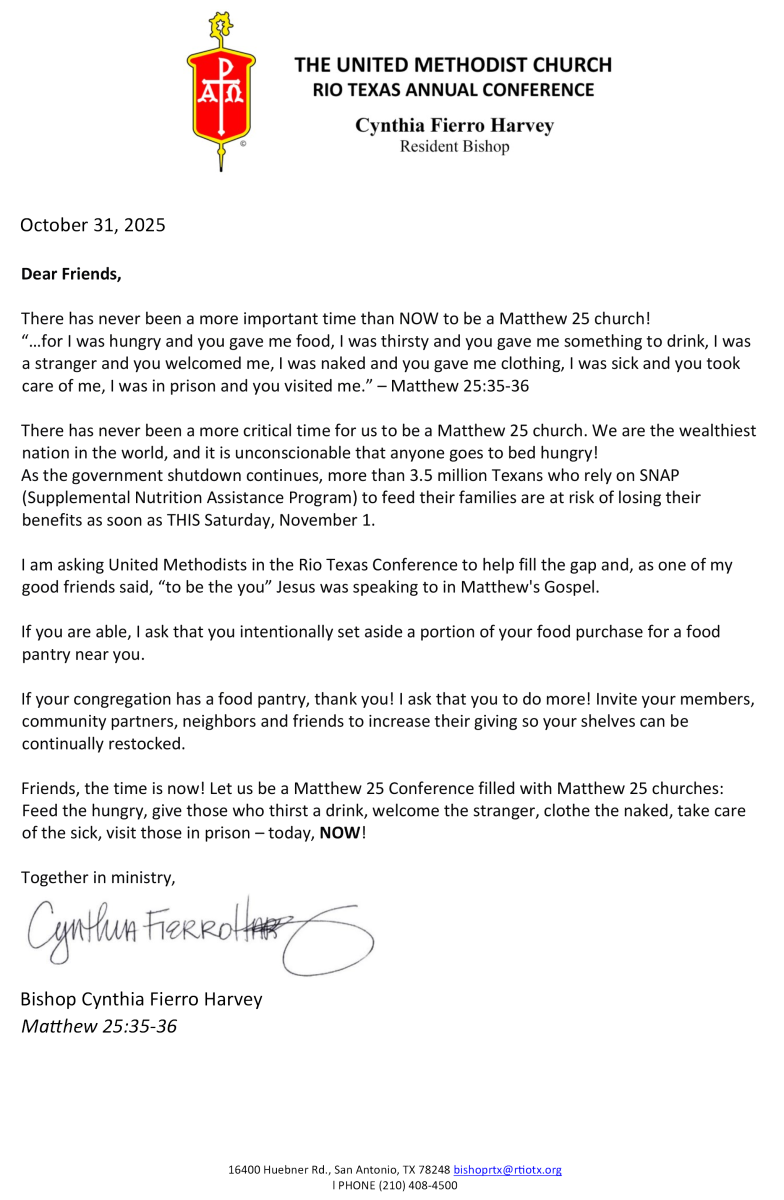 THE UNITED METHODIST CHURCH
RIO TEXAS ANNUAL CONFERENCE
Cynthia Fierro Harvey
Resident Bishop
ΑΩ
©
October 31, 2025
Dear Friends,
There has never been a more important time than NOW to be a Matthew 25 church!
“…for I was hungry and you gave me food, I was thirsty and you gave me something to drink, I was
a stranger and you welcomed me, I was naked and you gave me clothing, I was sick and you took
care of me, I was in prison and you visited me.” – Matthew 25:35-36
There has never been a more critical time for us to be a Matthew 25 church. We are the wealthiest
nation in the world, and it is unconscionable that anyone goes to bed hungry!
As the government shutdown continues, more than 3.5 million Texans who rely on SNAP
(Supplemental Nutrition Assistance Program) to feed their families are at risk of losing their
benefits as soon as THIS Saturday, November 1.
I am asking United Methodists in the Rio Texas Conference to help fill the gap and, as one of my
good friends said, “to be the you” Jesus was speaking to in Matthew's Gospel.
If you are able, I ask that you intentionally set aside a portion of your food purchase for a food
pantry near you.
If your congregation has a food pantry, thank you! I ask that you to do more! Invite your members,
community partners, neighbors and friends to increase their giving so your shelves can be
continually restocked.
Friends, the time is now! Let us be a Matthew 25 Conference filled with Matthew 25 churches:
Feed the hungry, give those who thirst a drink, welcome the stranger, clothe the naked, take care
of the sick, visit those in prison – today, NOW!
Together in ministry,
Cynthia Fierro Harvey
Bishop Cynthia Fierro Harvey
Matthew 25:35-36
16400 Huebner Rd., San Antonio, TX 78248 bishoprtx@rtiotx.org
| PHONE (210) 408-4500